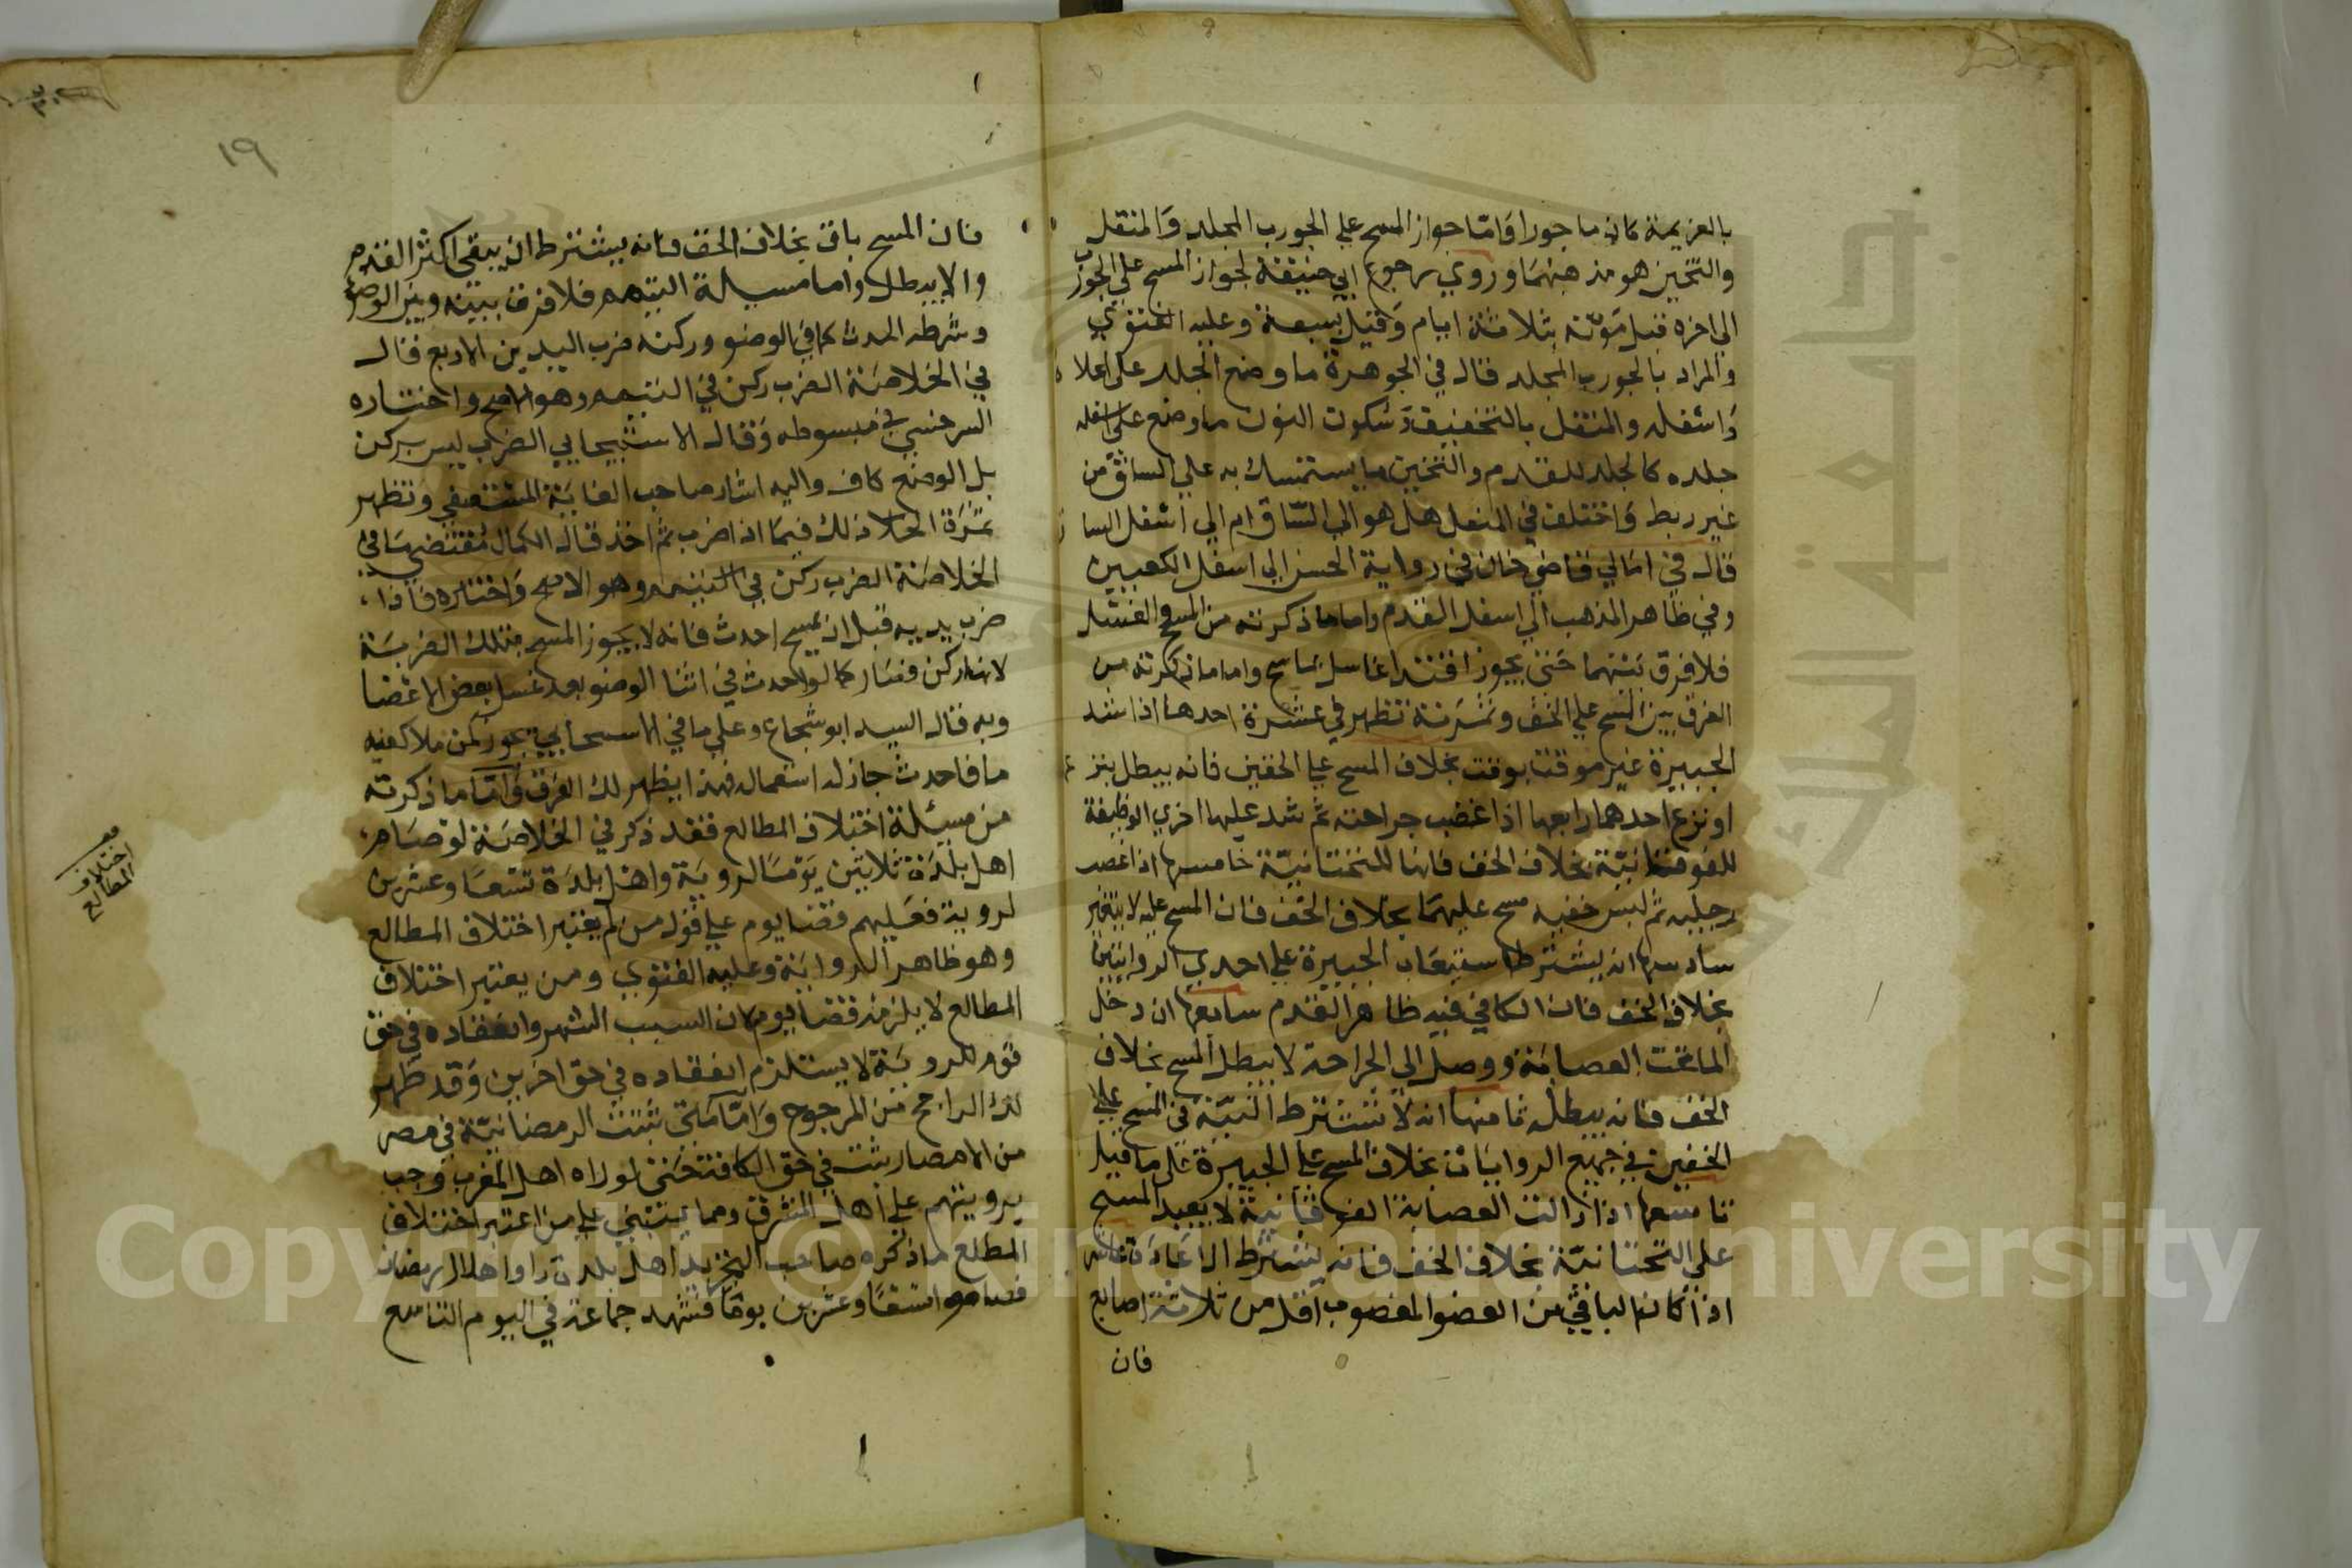 بالعزيمة كان ماجورا وامّا جواز المسح علي الجورب المجلد والمنتقل
والثخين هو مذهبهما وروي رجوع ابي حنيفة لجواز المسح علي الجورب
الى اخره قبل موته بثلاثة ايام وقيل بسبعة وعليه الفتوي
والمراد بالجورب المجلد قال في الجوهرة ما وضع الجلد على اعلاه
واسفله والمنتقل بالتخفيف وسكون النون ما وضع على اسفله
جلده كالجلد للقدم والثخين ما يستمسك به علي الساق من
غير ربط واختلف في المنعل هل هو الي الساق ام الي اسفل الساق
قال في امالي قاضي خان في رواية الحسن الي اسفل الكعبين
وفي ظاهر المذهب الي اسفل القدم واما ما ذكرته من المسح والغسل
فلا فرق بينهما حتى يجوز اقتدا غاسل بماسح واما ما ذكرته من
الفرق بين المسح علي الخف و تظهر في عشرة احدها اذا شد
الجبيرة غير موقت بوقت بخلاف المسح علي الخفين فانه يبطل بنز
او نزع احدهما رابعها اذا عصب جراحته ثم شد عليها اخري الوظيفة
للفوقانيّة بخلاف الخف فانها للتحتانيّة خامسها اذا عصب
رجليه ثم لبس خفيه مسح عليهما بخلاف الخف فان المسح عليه لا يتغير
سادسها انه يشترط استيعاب الجبيرة علي احدي الروايتين
بخلاف الخف فان الكافي فيه ظاهر القدم سابعها ان دخل
الما تحت العصابة ووصل الى الجراحة لا يبطل المسح بخلاف
الخف فانه يبطل ثامنها انه لا تشترط النيّة في المسح علي
الخفين في جميع الروايات بخلاف المسح علي الجبيرة على ما قيل
تاسعها اذا زالت العصابة الفوقانية لا يعيد المسح
علي التحتانيّة بخلاف الخف فانه يشترط الاعادة عاشرها
اذا كان الباقي من العضو المعضوب اقل من ثلاثة اصابع
فان
١٩
فان المسح باق بخلاف الخف فانه يشترط ان يبقى اكثر القدم
والا يبطل واما مسيلة التيمم فلا فرق بينه وبين الوضوء
وشرطه الحدث كما في الوضو وركنه ضرب اليدين الاربع قال
في الخلاصة الضرب ركن في التيمم وهو الاصح واختاره
السرخسي في مبسوطه وقال الاسبيجابي الضرب ليس بركن
بل الوضع كاف واليه اشار صاحب الغاية المستصفي وتظهر
ثمرة الخلاف ذلك فيما اذا ضرب ثم احدث قال الكمال مقتضي ما في
الخلاصة الضرب ركن في التيمم وهو الاصح واختاره فاذا
ضرب يديه قبل ان يمسح احدث فانه لا يجوز المسح بتلك الضربة
لانها ركن فصار كما لو احدث في اثنا الوضو بعد غسل بعض الاعضا
وبه قال السيد ابو شجاع وعلي ما في الاسبيجابي يجوز كمن ملا كفيه
ما فاحدث جاز له استعماله فبهذا يظهر لك الفرق وامّا ما ذكرته
من مسيلة اختلاف المطالع فقد ذكر في الخلاصة لو صام
اهل بلدة ثلاثين يوما لروية واهل بلدة تسعا وعشرين
لروية فعليهم قضا يوم علي قول من لم يعتبر اختلاف المطالع
وهو ظاهر الرواية وعليه الفتوي ومن يعتبر اختلاف
المطالع لا يلزمه قضا يوم لان السبب الشهر وانعقاده في حق
قوم للروية لا يستلزم انعقاده في حق اخرين وقد ظهر
لك الراجح من المرجوح وامّا متى ثبتت الرمضانيّة في مصر
من الامصار ثبتت في حق الكافة حتى لو راه اهل المغرب وجب
برويتهم علي اهل المشرق ومما يبتني علي من اعتبر اختلاف
المطلع ما ذكره صاحب التجريد اهل بلدة راوا هلال رمضان
فصاموا تسعا وعشرين يوما فشهد جماعة في اليوم التاسع
اختلاف
المطالع
Copyright © King Saud University